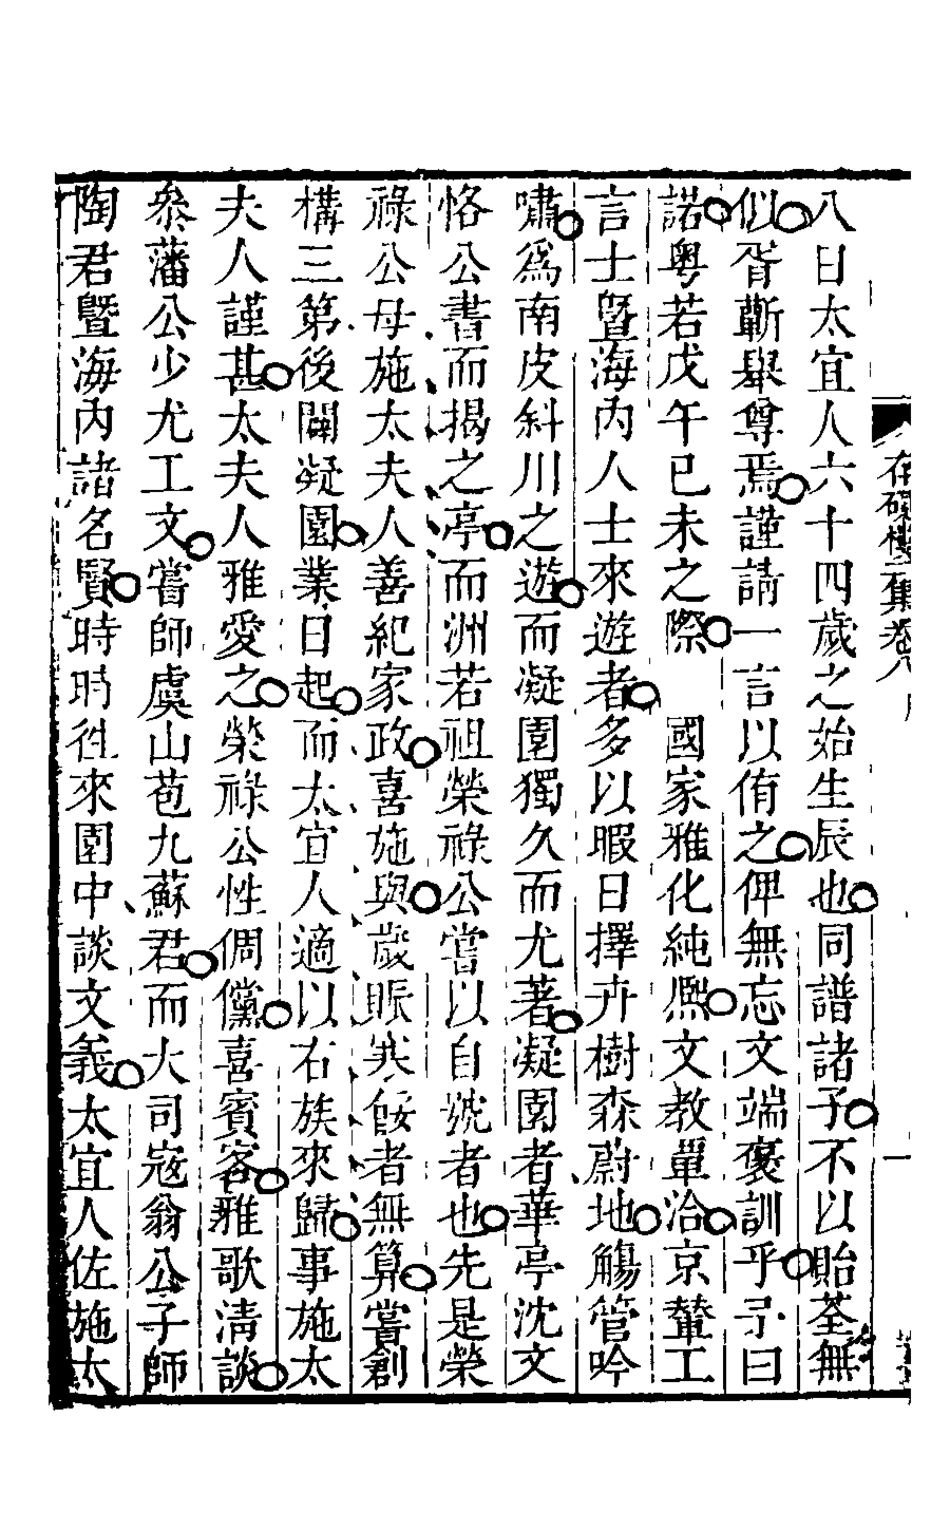 八日太宜人六十四歲之始生辰也同譜諸子不以貽荃無
似胥蘄舉尊焉謹請一言以侑之俾無忘文端褒訓乎予曰
諾粤若戊午已未之際國家雅化純熈文教單洽京輦工
言士曁海内人士來遊者多以暇日擇卉樹森蔚地觴管吟
嘯爲南皮斜川之遊而凝園獨久而尤著凝園者華亭沈文
恪公書而揭之亭而洲若祖榮祿公嘗以自號者也先是榮
祿公母施太夫人善紀家政喜施與歲賑寒餒者無算嘗創
構三第後闢凝園業日起而太宜人適以右族來歸事施太
夫人謹甚太夫人雅愛之榮祿公性倜儻喜賓客雅歌清談
叅藩公少尤工文嘗師虞山苞九蘇君而大司寇翁公子師
陶君曁海内諸名賢時時徃來園中談文義太宜人佐施太
存硯樓二集卷八